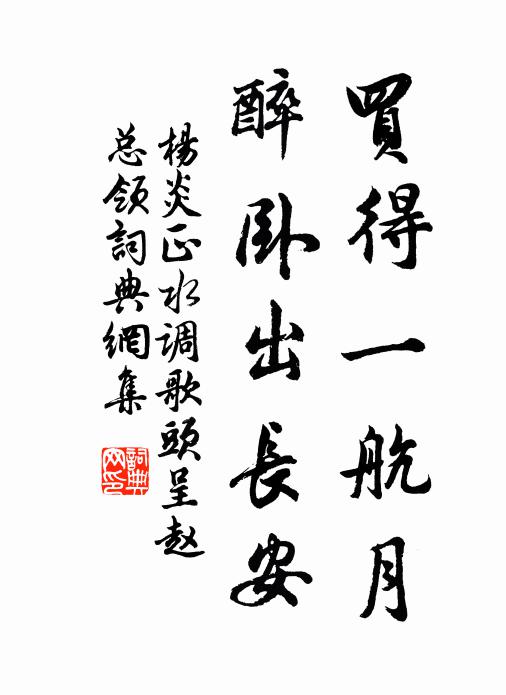 買得一航月
醉卧出長安
楊炎正水调歌頭呈赵
总领詞典網集
詞典网印